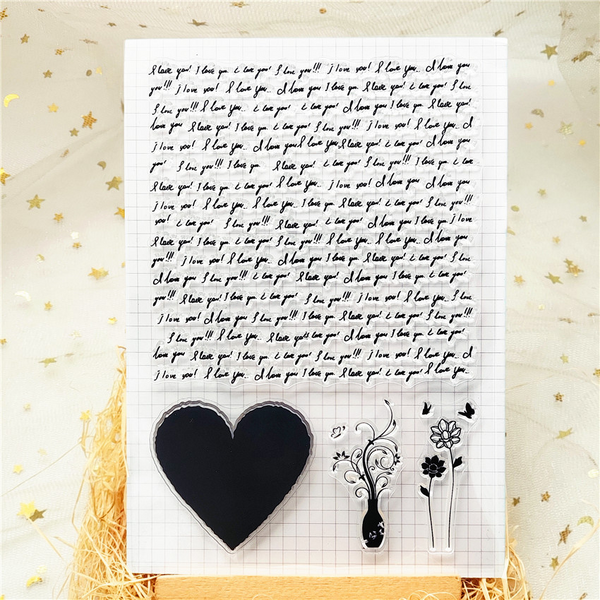 I love you! I love you I love you! I love you!!! I love you! I love you.. I love you
you!!! I love you.. I love you I love you! I love you I love you! I love
I love you!!! I love you.. I love you I love you! I love you I love you!
love you I love you! I love you I love you! I love you!!! I love you! I love you.. I
I love you! I love you.. I love you I love you I love you.. I love you! I love you I love
you! I love you!!! I love you I love you! I love you! I love you!!! I love you I love
I love you! I love you I love you! I love you.. I love you! I love you I love you
I love you! I love you.. I love you I love you! I love you I love you! I love
you! I love you! I love you!!! I love you.. I love you! I love you I love you I love
I love you! I love you I love you! I love you!!! I love you.. I love you.. I love you
you!!! I love you! I love you.. I love you I love you! I love you I love you!
I love you I love you!!! I love you! I love you! I love you I love you! I love
you!!! I love you! I love you I love you! I love you!!! I love you! I love you.. I love
I love you! I love you I love you! I love you!!! I love you I love you! I love you!!!
I love you!!! I love you.. I love you I love you! I love you I love you!
love you I love you! I love you I love you! I love you!!! I love you! I love you.. I
I love you! I love you.. I love you I love you! I love you I love you! I love you..